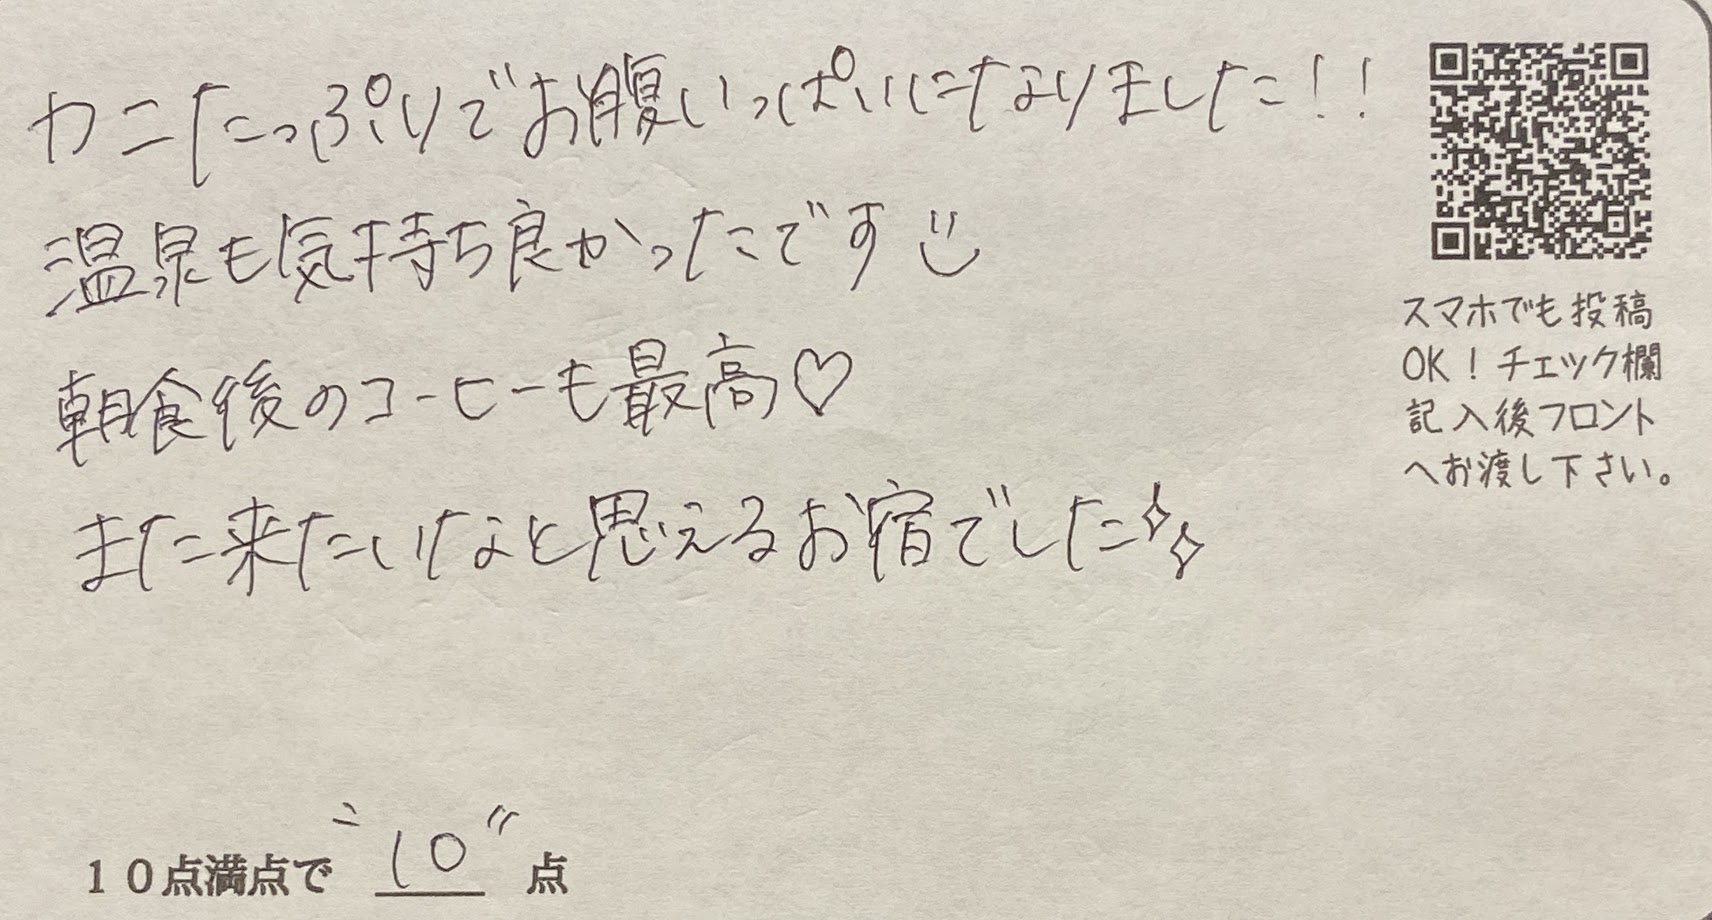 カニたっぷりでお腹いっぱいになりました！！
温泉も気持ち良かったです
朝食後のコーヒーも最高♡
また来たいなと思えるお宿でした
スマホでも投稿
OK！チェック欄
記入後フロント
へお渡し下さい。
１０点満点で "10" 点